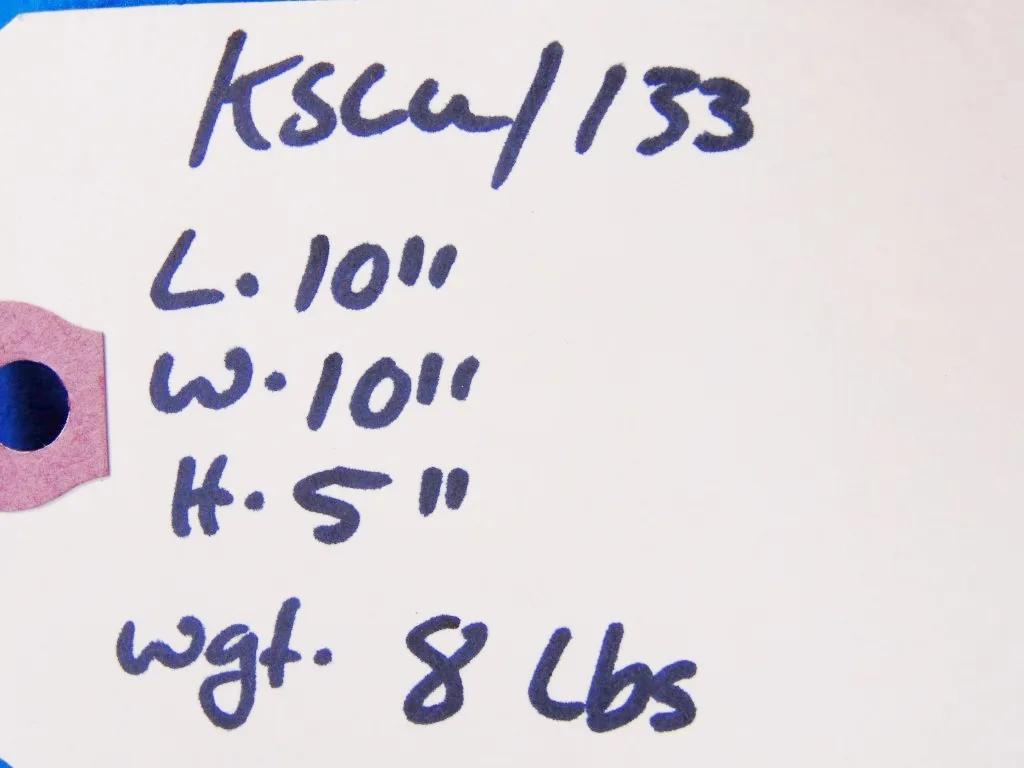 KSCW/133
L. 10"
W. 10"
H. 5"
wgt. 8 Lbs